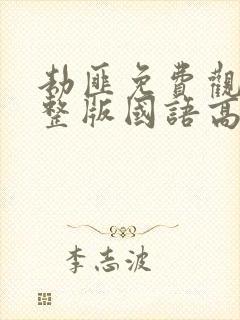 劫匪免費觀
整版國語高
李志波